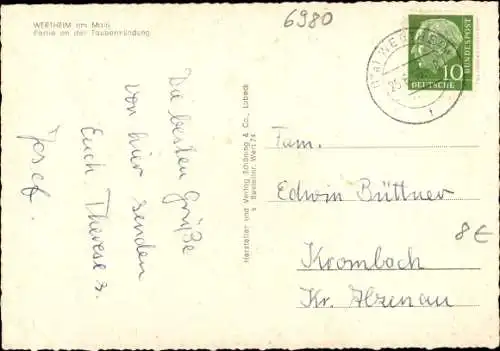 WERTHEIM am Main
Partie an der Taubermündung
6980
Die besten Grüße
von hier senden
Euch Therese &
Josef.
Hersteller und Verlag Schöning & Co., Lübeck
Bestellnr. Wert 74
10
DEUTSCHE
BUNDESPOST
Fam.
Edwin Büttner
8€
Krombach
Kr. Alzenau